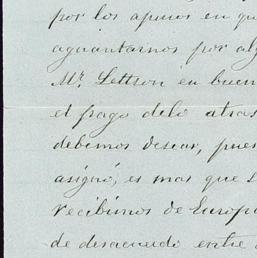 por los apuros en qu
aguantarnos por alg
Mr. Lettson en buen
el pago delo atras
debemos desear, pues
asignó, es mas que s
recibimos de Europa
de desacuerdo entre